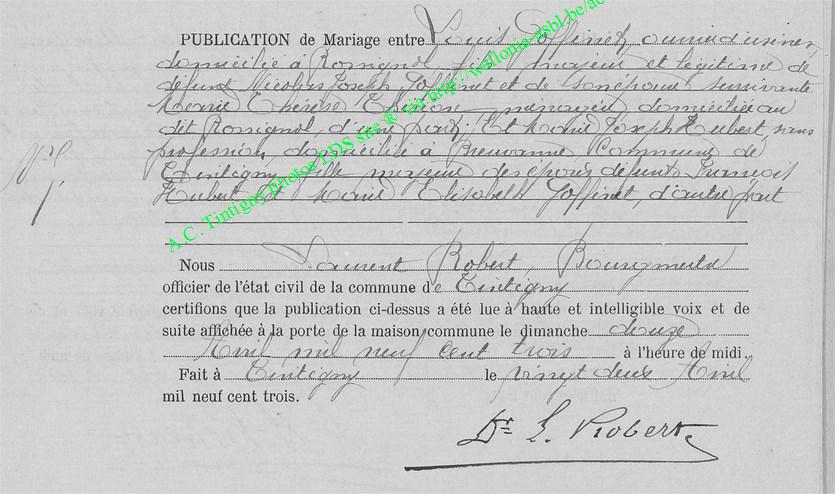 PUBLICATION de Mariage entre Louis Goffinet, ouvrier d'usines,
domicilié à Rossignol, fils majeur et légitime de
défunt Nicolas Joseph Goffinet et de son épouse survivante
Marie Thérèse Thiry, ménagère, domiciliée au
dit Rossignol, d'une part; Et Marie Joseph Hubert, sans
profession, domiciliée à Breuvanne Commune de
Tintigny, fille majeure des époux défunts François
Hubert et Marie Elisabeth Goffinet, d'autre part
N° 7.
Nous Laurent Robert, Bourgmestre
officier de l'état civil de la commune de Tintigny
certifions que la publication ci-dessus a été lue à haute et intelligible voix et de
suite affichée à la porte de la maison commune le dimanche douze
Avril mil neuf cent trois à l'heure de midi.
Fait à Tintigny le vingt deux Avril
mil neuf cent trois.
Dr L. Robert
A.C. Tintigny photos LDS site ® via http://wallonia-asbl.be/ac